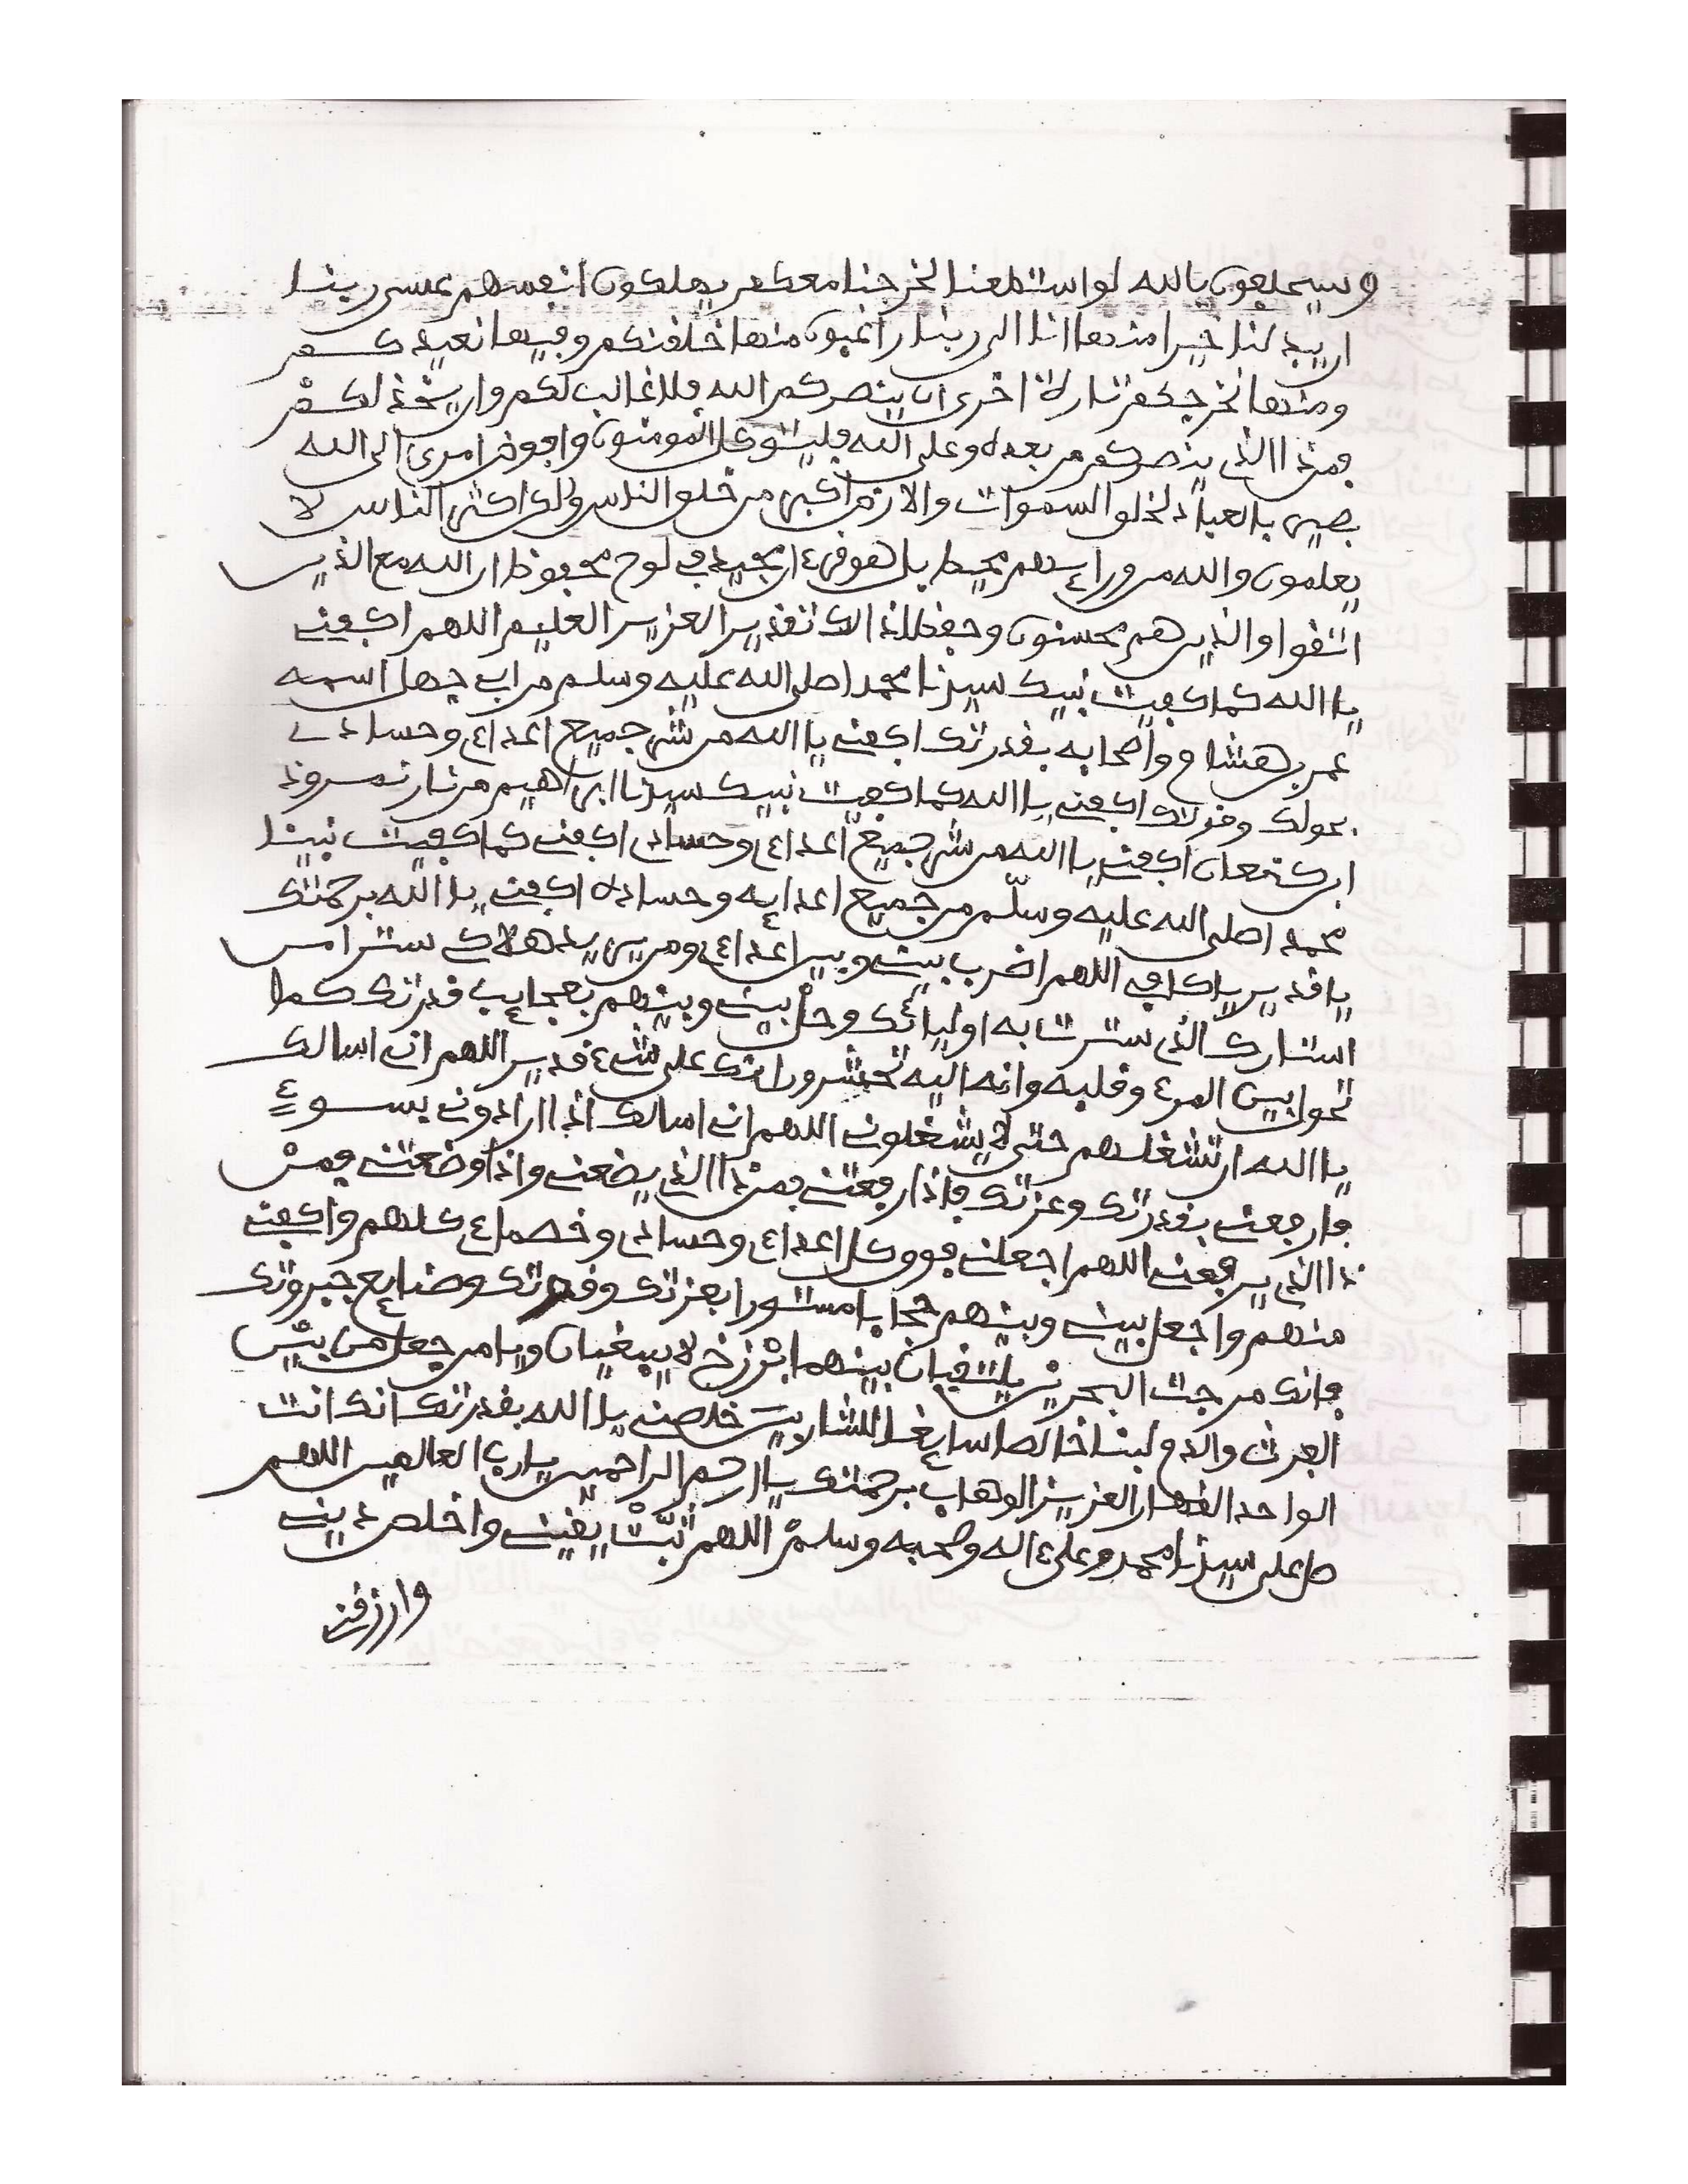 وسيحلفون بالله لو استطعنا لخرجنا معكم يهلكون انفسهم عسى ربنا
ان يبدلنا خيرا منها انا الى ربنا راغبون منها خلقنكم وفيها نعيدكم
ومنها نخرجكم تارة اخرى ان ينصركم الله فلا غالب لكم وان يخذلكم
فمن ذا الذي ينصركم من بعده وعلى الله فليتوكل المومنون وافوض امري الى الله
بصير بالعباد لخلق السموات والارض اكبر من خلق الناس ولكن اكثر الناس لا
يعلمون والله من وراءهم محيط بل هو قرءان مجيد في لوح محفوظ ان الله مع الذين
اتقوا والذين هم محسنون وحفظا ذالك تقدير العزيز العليم اللهم اكفني
يا الله كما كفيت نبيك سيدنا محمدا صلى الله عليه وسلم من ابي جهل اسمه
عمر بن هشام واصحابه بقدرتك اكفني يا الله من شر جميع اعداءي وحسادي
بحولك وقوتك اكفني يا الله كما كفيت نبيك سيدنا ابراهيم من نار نمروذ
ابن كنعان اكفني يا الله من شر جميع اعداءي وحسادي اكفني كما كفيت نبينا
محمدا صلى الله عليه وسلم من جميع اعدايه وحساده اكفني يا الله برحمتك
يا قدير يا كافي اللهم اضرب بيني وبين اعداءي ومن يريد هلاكي سترا من
استارك الذي سترت به اوليائك وحل بيني وبينهم بعجايب قدرتك كما
تحول بين المرء وقلبه وانه اليه تحشرون انك على شيء قدير اللهم اني اسالك
يا الله ان تشغلهم حتى لا يشغلوني اللهم اني اسالك اذا ارادوني بسوء
فارفعني بقدرتك وعزتك فاذا رفعتني فمن ذا الذي يضعني واذا وضعتني فمن
ذا الذي يرفعني اللهم اجعلني فوق كل اعداءي وحسادي وخصماءي كلهم واكفني
منهم واجعل بيني وبينهم حجابا مستورا بعزتك وقدرتك وصنايع جبروتك
فانك مرجت البحرين يلتقيان بينهما برزخ لا يبغيان ويا من جعل من بين
الفرث والدم لبنا خالصا سايغا للشاربين خلصني يا الله بقدرتك انك انت
الواحد القهار العزيز الوهاب برحمتك يا ارحم الراحمين يا رب العالمين اللهم
صل على سيدنا محمد وعلى ءاله وصحبه وسلم اللهم ثبت يقيني واخلص ديني
وارزقني